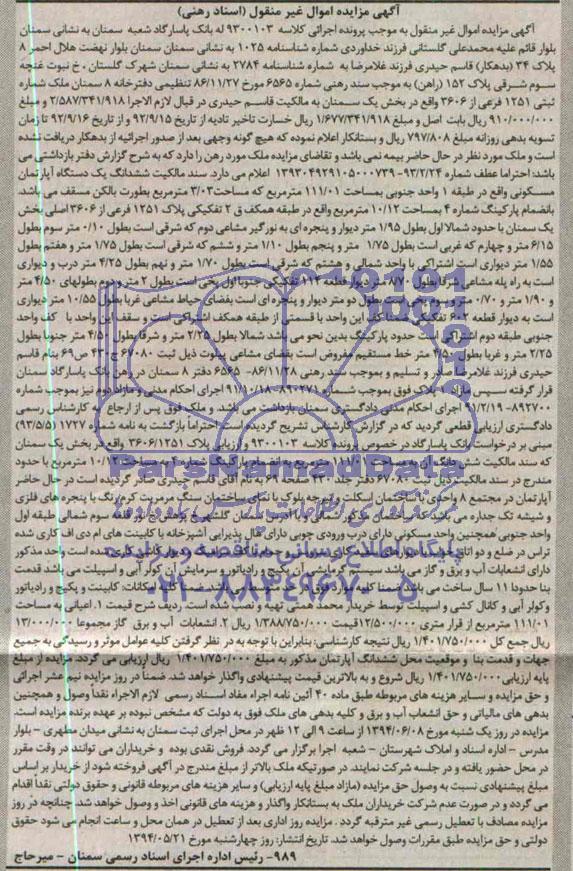 آگهی مزایده اموال غیر منقول (اسناد رهنی)
آگهی مزایده اموال غیر منقول به موجب پرونده اجرائی کلاسه ۹۳۰۰۱۰۳ له بانک پاسارگاد شعبه سمنان به نشانی سمنان
بلوار قائم علیه محمدعلی گلستانی فرزند خداوردی شماره شناسنامه ۱۰۲۵ به نشانی سمنان بلوار نهضت هلال احمر ۸
پلاک ۳۴ (بدهکار) قاسم حیدری فرزند غلامرضا به شماره شناسنامه ۲۷۸۴ به نشانی سمنان شهرک گلستان، خ نبوت غنچه
سوم شرقی پلاک ۱۵۲ (راهن) به موجب سند رهنی شماره ۶۵۶۵ مورخ ۸۶/۱۱/۲۷ تنظیمی دفترخانه ۸ سمنان ملک شماره
ثبتی ۱۲۵۱ فرعی از ۳۶۰۶ واقع در بخش یک سمنان به مالکیت قاسم حیدری در قبال لازم الاجرا ۲/۵۸۷/۳۴۱/۹۱۸ و مبلغ
۹۱۰/۰۰۰/۰۰۰ ریال بابت اصل و مبلغ ۱/۶۷۷/۳۴۱/۹۱۸ ریال خسارت تاخیر تادیه از تاریخ ۹۲/۹/۱۵ و از تاریخ ۹۲/۹/۱۶ تا زمان
تسویه بدهی روزانه مبلغ ۷۹۷/۸۰۸ ریال و بستانکار اعلام نموده که هیچ گونه وجهی بعد از صدور اجرائیه از بدهکار دریافت نشده
است و ملک مورد نظر در حال حاضر بیمه نمی باشد و تقاضای مزایده ملک مورد رهن را دارد که به شرح گزارش دفتر بازداشتی می
باشد: احتراما عطف شماره ۱۳۹۳۰۴۹۲۹۱۰۵۰۰۰۷۳۹-۹۳/۲/۲۴ اعلام می دارد. سند مالکیت ششدانگ یک دستگاه آپارتمان
مسکونی واقع در طبقه ۱ واحد جنوبی بمساحت ۱۱۱/۰۱ مترمربع که مساحت ۳/۰۳ مترمربع بطورت بالکن مسقف می باشد.
بانضمام پارکینگ شماره ۴ بمساحت ۱۰/۱۲ مترمربع واقع در طبقه همکف ق ۲ تفکیکی پلاک ۱۲۵۱ فرعی از ۳۶۰۶ اصلی بخش
یک سمنان با حدود شمالا اول بطول ۱/۹۵ متر دیوار و پنجره ای به نورگیر مشاعی دوم که شرقی است بطول ۰/۱۰ متر سوم بطول
۶/۱۵ متر و چهارم که غربی است بطول ۱/۷۵ متر و پنجم بطول ۱/۱۰ متر و ششم که شرقی است بطول ۱/۷۵ متر و هفتم بطول
۱/۵۵ متر دیواری است اشتراکی با واحد شمالی و هشتم که شرقی است بطول ۱/۷۰ متر و نهم بطول ۴/۲۵ متر درب و دیواری
است به راه پله مشاعی شرقا بطول ۸/۷۰ متر دیوار قطعه ۱۱۴ تفکیکی جنوبا اول یخی است بطول ۲ متر و دوم بطولهای ۴/۵۰ متر
و ۱/۹۰ متر و ۰/۷۰ متر و سوم یخی است بطول دو متر دیوار و پنجره ای است بفضای حیاط مشاعی غربا بطول ۱۰/۵۵ متر دیواری
است به دیوار قطعه ۶۰۲ تفکیکی ضمنا کف این واحد با قسمتی از طبقه همکف اشتراکی است و سقف این واحد با کف واحد
جنوبی طبقه دوم اشتراکی است حدود پارکینگ بدین نحو می باشد شمالا بطول ۲/۲۵ متر و شرقا بطول ۴/۵۰ متر جنوبا بطول
۲/۲۵ متر و غربا بطول ۴/۵۰ متر خط مستقیم مفروض است بفضای مشاعی پیلوت ذیل ثبت ۶۷۰۸۰ ج ۴۳۰ ص ۶۹ بنام قاسم
حیدری فرزند غلامرضا و تسلیم و بموجب سند رهنی ۸۶/۱۱/۲۸- ۶۵۶۵ دفتر ۸ سمنان در رهن بانک پاسارگاد سمنان
قرار گرفته سپس مازاد پلاک فوق بموجب شماره ۸۹۰۲۷۱-۹۱/۱۰/۱۸ اجرای احکام مدنی و مازاد دوم نیز بموجب شماره
۸۹۲۷۰۰-۹۱/۲/۱۹ اجرای احکام مدنی دادگستری سمنان بازداشت می باشد و ملک فوق پس از ارجاع به کارشناس رسمی
دادگستری ارزیابی قطعی گردید که در گزارش کارشناس تشریح گردیده است: احتراما بازگشت به نامه شماره ۱۷۲۷ (۹۳/۵/۵)
مبنی بر درخواست بانک پاسارگاد در خصوص پرونده کلاسه ۹۳۰۰۱۰۳ و ارزیابی پلاک ۳۶۰۶/۱۲۵۱ واقع در بخش یک سمنان
که سند مالکیت شش دانگ آن به مساحت ۱۱۱/۰۱ مترمربع به انضمام پارکینگ شماره ۴ به مساحت ۱۰/۱۲ مترمربع با حدود
مندرج در سند مالکیت ذیل ثبت ۶۷۰۸۰ دفتر جلد ۴۳۰ صفحه ۶۹ به نام آقای قاسم حیدری صادر گردیده است در حال حاضر
آپارتمان در مجتمع ۸ واحدی با ساختمان اسکلت و تیرچه بلوک با نمای ساختمان سنگ مرمریت کرم رنگ با پنجره های فلزی
و شیشه تک جداره می باشد که ساختمان مذکور شمالی و با قدمت ساختمان گلشهر خ پوشش نور قلعه سوم شمالی طبقه اول
واحد جنوبی همچنین واحد مسکونی دارای درب ورودی چوبی دارای هال پذیرایی آشپزخانه با کابینت های ام دی اف کاری شده
تراس در ضلع و دو اتاق خواب دیوار
دارای انشعابات آب و برق و گاز می باشد سیستم گرمایشی آن پکیج و رادیاتور و سرمایش آن کولر آبی و اسپیلت می باشد قدمت
بنا حدودا ۱۱ سال ساخت می باشد
وکولر آبی و کانال کشی و اسپیلت توسط خریدار محمد همتی تهیه و نصب شده است. ردیف شرح قیمت ۱. اعیانی به مساحت
۱۱۱/۰۱ مترمربع از قرار متری ۱۲/۵۰۰/۰۰۰ قیمت ۱/۳۸۸/۷۵۰/۰۰۰ ریال ۲. انشعابات آب و برق گاز مجموعا ۱۳/۰۰۰/۰۰۰
ریال جمع کل ۱/۴۰۱/۷۵۰/۰۰۰ ریال نتیجه کارشناسی: بنابراین با توجه به در نظر گرفتن کلیه عوامل موثر و رسیدگی به جمیع
جهات و قدمت بنا و موقعیت محل ششدانگ آپارتمان مذکور به مبلغ ۱/۴۰۱/۷۵۰/۰۰۰ ریال ارزیابی می گردد. مزایده از مبلغ
پایه ارزیابی ۱/۴۰۱/۷۵۰/۰۰۰ ریال شروع و به بالاترین قیمت پیشنهادی واگذار خواهد شد. ضمناً در روز مزایده نیم عشر اجرائی
و حق مزایده و سایر هزینه های مربوطه طبق ماده ۴۰ آئین نامه اجراء مفاد اسناد رسمی لازم الاجراء نقداً وصول و همچنین
بدهی های مالیاتی و حق انشعاب آب و برق و کلیه بدهی های ملک فوق به دولت که مشخص نبوده بر عهده برنده مزایده است.
مزایده در روز یک شنبه مورخ ۱۳۹۴/۰۶/۰۸ از ساعت ۹ الی ۱۲ ظهر در محل اجرای ثبت سمنان به نشانی میدان مطهری – بلوار
مدرس – اداره اسناد و املاک شهرستان – شعبه اجرا برگزار می گردد. فروش نقدی بوده و خریداران می توانند در وقت مقرر
در محل حضور یافته و در جلسه شرکت نمایند. در صورتیکه ملک بالاتر از مبلغ مندرج در آگهی فروخته شود از خریدار بر اساس
مبلغ پیشنهادی نسبت به وصول حق مزایده (مازاد مبلغ پایه ارزیابی) و سایر هزینه های مربوطه قانونی و حقوق دولتی نقداً اقدام
می گردد و در صورت عدم شرکت خریداران ملک به بستانکار واگذار و هزینه های قانونی اخذ و وصول خواهد شد. چنانچه در روز
مزایده مصادف با تعطیل رسمی غیر مترقبه گردد . مزایده روز اداری بعد از تعطیل در همان محل و ساعت انجام می شود حقوق
دولتی و حق مزایده طبق مقررات وصول خواهد شد. تاریخ انتشار: روز چهارشنبه مورخ ۱۳۹۴/۰۵/۲۱
۹۸۹- رئیس اداره اجرای اسناد رسمی سمنان – میرحاج
پایگاه اطلاع رسانی مناقصه و مزایده
۰۲۱-۸۸۳۴۹۶۷۰-۵